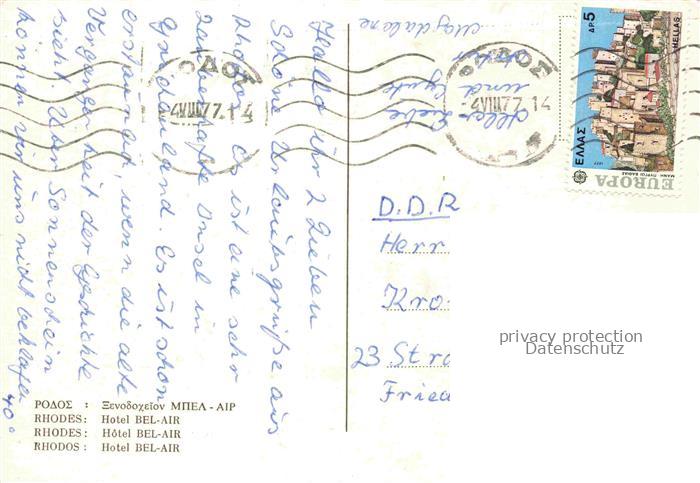 Hallo Ihr 2 Lieben
Schöne Urlaubsgrüße aus
Rhodos. Es ist eine sehr
zauberhafte Insel in
Griechenland. Es ist schon
erstaunt, wenn die alte
Vergangenheit der Geschichte
sieht. Vom Sonnenschein
können wir uns nicht beklagen
40°
Alles Liebe
und Gute
Magdalene
ΡΟΔΟΣ
4 VIII 77. 14
ΟΔΟΣ
4 VIII 77. 14
ΔΡ. 5
HELLAS
ΕΛΛΑΣ
1977
ΜΑΝΗ ΠΥΡΓΟΙ ΒΑΘΙΑΣ
EUROPA
D.D.R
Herr
Kro
23 Stra
Frie
privacy protection
Datenschutz
ΡΟΔΟΣ : Ξενοδοχεῖον ΜΠΕΛ - ΑΙΡ
RHODES: Hotel BEL-AIR
RHODES: Hôtel BEL-AIR
RHODOS: Hotel BEL-AIR